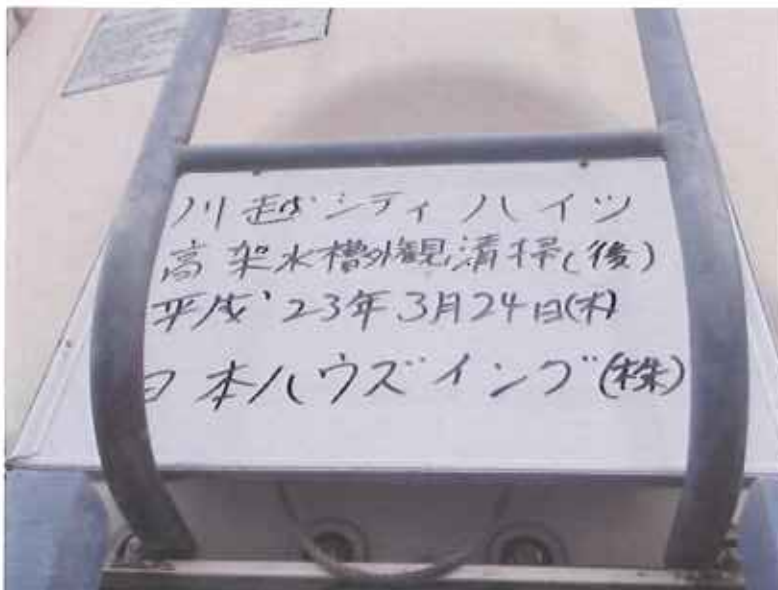 川越シティハイツ
高架水槽外観清掃(後)
平成23年3月24日(木)
日本ハウズイング(株)